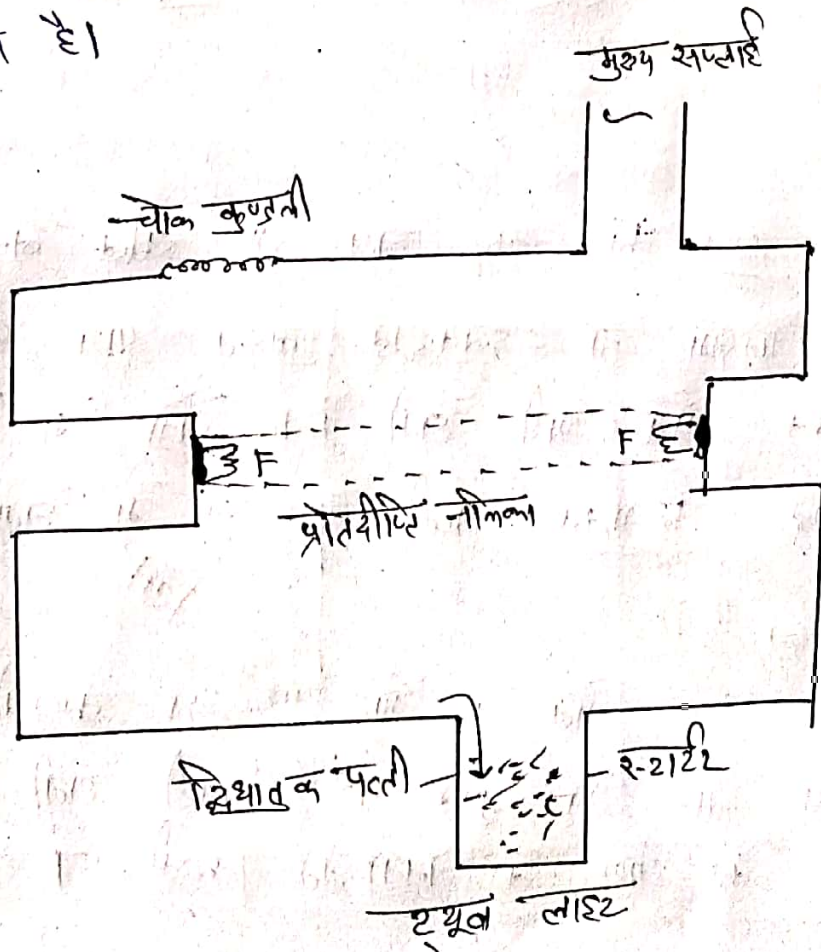 है।
मुख्य सप्लाई
चोक कुण्डली
F
F
प्रतिदीप्ति नलिका
द्विधातुक पत्ती
स्टार्टर
ट्यूब लाइट